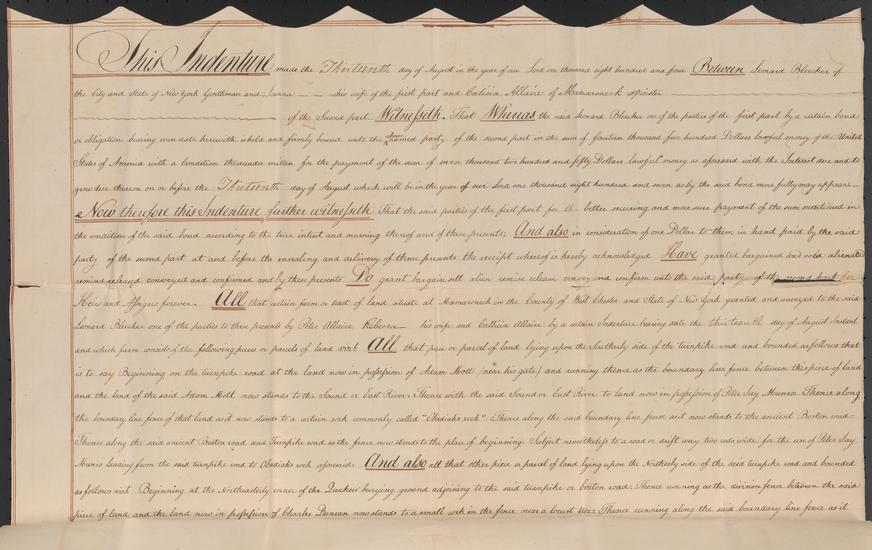 This Indenture made the Thirteenth day of August in the year of our Lord one thousand eight hundred and four Between Leonard Bleecker of
the City and State of New York Gentleman and Joanna his wife of the first part and Calicia Allaire of Mamaroneck Spinster
of the Second part. Witnesseth. That Whereas the said Leonard Bleecker one of the parties of the first part by a certain bond
or obligation bearing even date herewith is held and firmly bound unto the above named party of the second part in the sum of fourteen thousand five hundred Dollars lawful money of the United
States of America with a Condition thereunder written for the payment of the sum of seven thousand two hundred and fifty Dollars Lawful money as aforesaid with the Interest due and to
grow due thereon on or before the Thirteenth day of August which will be in the year of our Lord one thousand eight hundred and seven as by the said bond more fully may appear
Now therefore this Indenture further witnesseth That the said parties of the first part for the better securing and more sure payment of the sum mentioned in
the condition of the said bond according to the true intent and meaning thereof and of these presents; And also in consideration of one Dollar to them in hand paid by the said
party of the second part at and before the ensealing and delivery of these presents the receipt whereof is hereby acknowledged Have granted bargained and sold aliened
remised released conveyed and confirmed and by these presents Do grant bargain sell alien remise release convey and confirm unto the said party of the second part her
Heirs and Assigns forever. All that certain farm or tract of land situate at Mamaroneck in the County of West Chester and State of New York granted and conveyed to the said
Leonard Bleecker one of the parties to these presents by Peter Allaire, Rebecca his wife and Callicia Allaire by a certain Indenture bearing date the thirteenth day of August Instant
and which farm consists of the following pieces or parcels of land viz! All that piece or parcel of land lying upon the Southerly side of the turnpike road and bounded as follows that
is to say Beginning on the turnpike road at the land now in possession of Adam Mott (near his gate) and running thence as the boundary line fence between this piece of land
and the land of the said Adam Mott now stands to the Sound or East River: Thence with the said Sound or East River to land now in possession of Peter Jay Munroe. Thence along
the boundary line fence of that land as it now stands to a certain rock commonly called "Obediahs rock". Thence along the said boundary line fence as it now stands to the ancient Boston road
Thence along the said ancient Boston road and Turnpike road as the fence now stands to the place of beginning: Subject nevertheless to a road or drift way two rods wide for the use of Peter Jay
Munro leading from the said turnpike road to Obediahs rock aforesaid: And also all that other piece or parcel of land lying upon the Northerly side of the said turnpike road and bounded
as follows viz! Beginning at the Northeasterly corner of the Quakers burying ground adjoining to the said turnpike or boston road: Thence running as the division fence between the said
piece of land and the land now in possession of Charles Duncan now stands to a small rock in the fence near a locust tree Thence running along the said boundary line fence as it